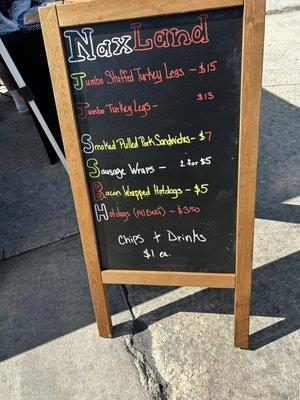 NaxLand
Jumbo Stuffed Turkey Legs - $15
Jumbo Turkey Legs - $13
Smoked Pulled Pork Sandwiches - $7
Sausage Wraps - 2 for $5
Bacon Wrapped Hotdogs - $5
Hotdogs (All Beef) - $3.50
Chips + Drinks
$1 ea.